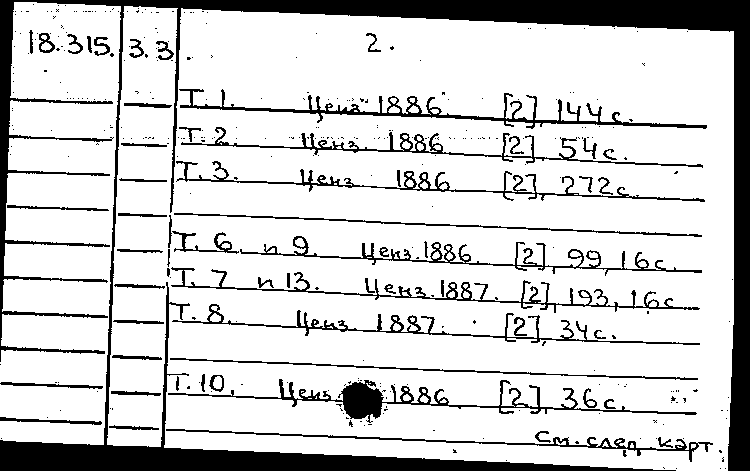 18.315. 3.3. 2.
Т. 1. Ценз. 1886 [2], 144 с.
Т. 2. Ценз. 1886 [2], 54 с.
Т. 3. Ценз 1886 [2], 272 с.
Т. 6. п 9. Ценз. 1886. [2], 99, 16 с.
Т. 7 п 13. Ценз. 1887. [2], 193, 16 с
Т. 8. Ценз. 1887. [2], 34 с.
Т. 10. Ценз. 1886. [2], 36 с.
См. след. карт.